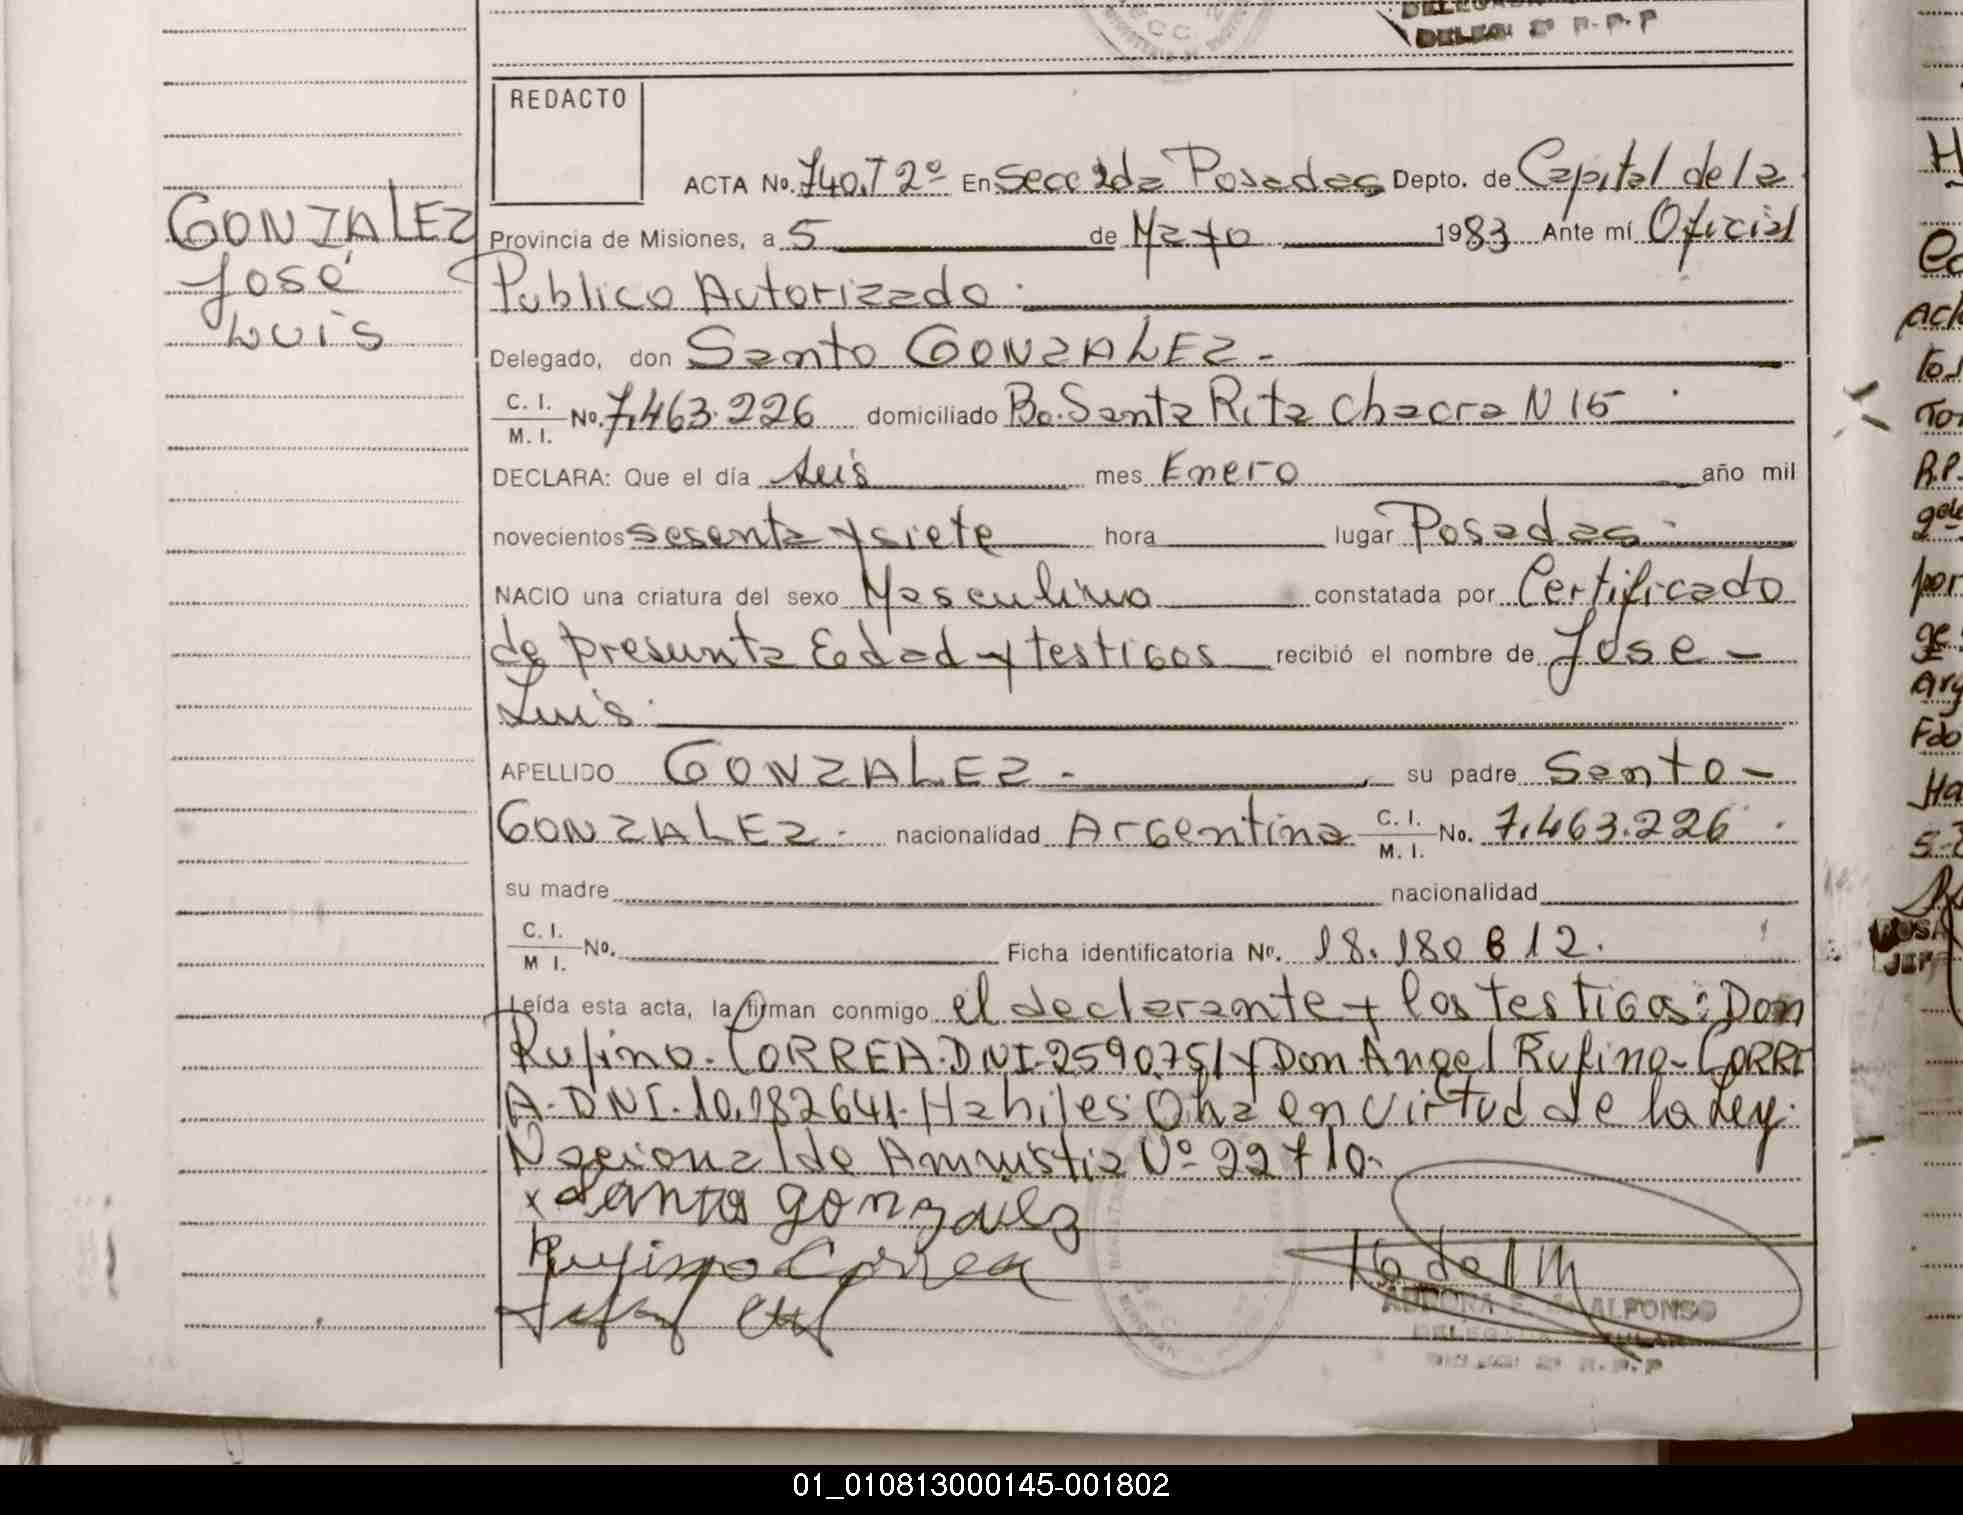 DELEG. 2º R.P.P
REDACTO
ACTA No. 740.T 2º En Secc 2da Posadas Depto. de Capital de la
GONZALEZ
José
Luis
Provincia de Misiones, a 5 de Mayo 1983 Ante mí Oficial
Publico Autorizado.
Delegado, don Santo GONZALEZ.-
C. I.
M. I. No. 7.463.226 domiciliado Bo. Santa Rita Chacra N 15
DECLARA: Que el día seis mes Enero año mil
novecientos sesenta y siete hora lugar Posadas.
NACIO una criatura del sexo Masculino constatada por Certificado
de presunta Edad y testigos recibió el nombre de Jose-
Luis.
APELLIDO GONZALEZ.- su padre Santo-
GONZALEZ. nacionalidad Argentina C. I.
M. I. No. 7.463.226.
su madre nacionalidad
C. I.
M I. No. Ficha identificatoria No. 18.180 812.
Leída esta acta, la firman conmigo el declarante y los testigos: Don
Rufino. CORREA. DNI. 2590751 y Don Angel Rufino- CORRE
A. DNI. 10.182641. Habiles en virtud de la Ley.
Nacional de Amnistia Nº 22710.
x Santos gonzalez
Rufino Correa
ALFONSO
01_010813000145-001802